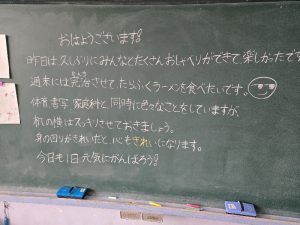 おはようございます!
昨日は久しぶりにみんなとたくさんおしゃべりができて、楽しかったです
週末には完治させて、たらふくラーメンを食べたいです。
体育、書写、家庭科と同時に色々なことをしていますが、
机の横はスッキリさせておきましょう。
身の回りがきれいだと、心もきれいになります。
今日も1日元気にがんばろう!